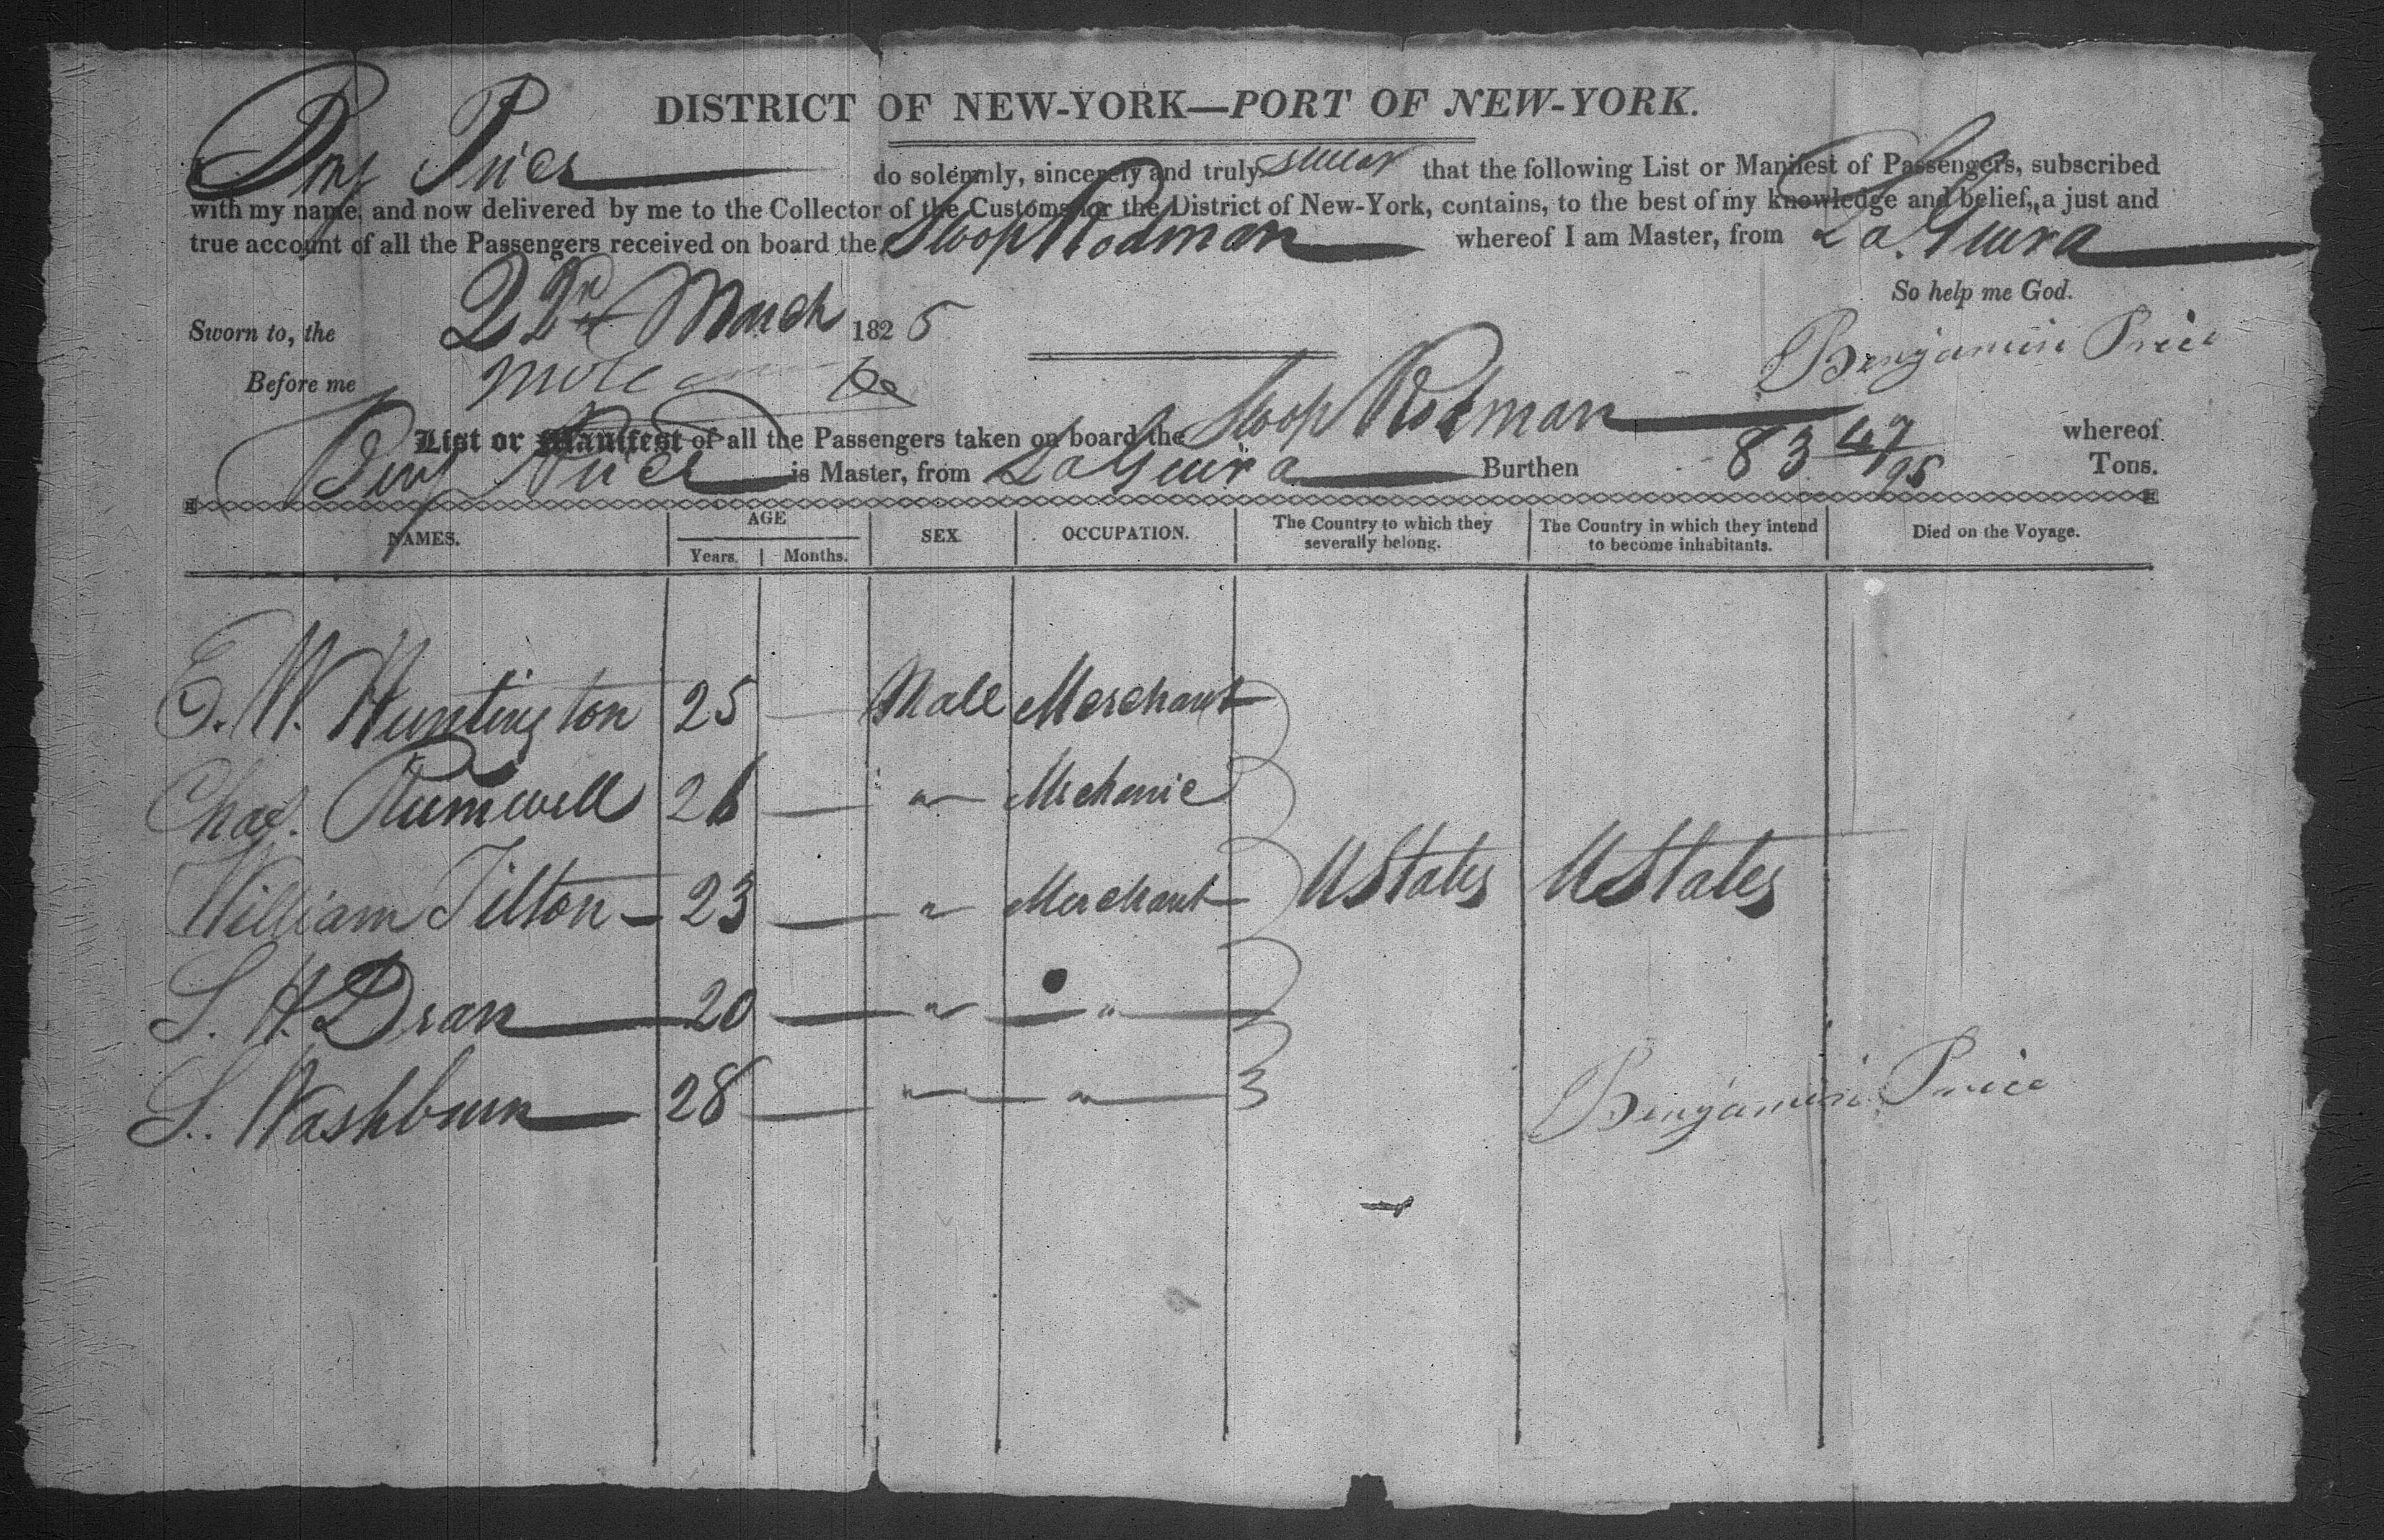 DISTRICT OF NEW-YORK—PORT OF NEW-YORK.
Benj Price do solemnly, sincerely and truly swear that the following List or Manifest of Passengers, subscribed
with my name, and now delivered by me to the Collector of the Customs for the District of New-York, contains, to the best of my knowledge and belief, a just and
true account of all the Passengers received on board the Sloop Rodman whereof I am Master, from LaGuira
So help me God.
Sworn to, the 22nd March 1825
Benjamin Price
Before me
List or Manifest of all the Passengers taken on board the Sloop Rodman whereof
Benj Price is Master, from LaGuira Burthen 83 47/95 Tons.
NAMES. AGE SEX. OCCUPATION. The Country to which they severally belong. The Country in which they intend to become inhabitants. Died on the Voyage.
Years. Months.
E. W. Huntington 25 — Male Merchant
Chas. Rumwell 26 — " Mechanic
William Tilton — 23 — " Merchant UStates UStates
S. H. Dean 20 — " "
S. Washburn 28 — " "
Benjamin Price